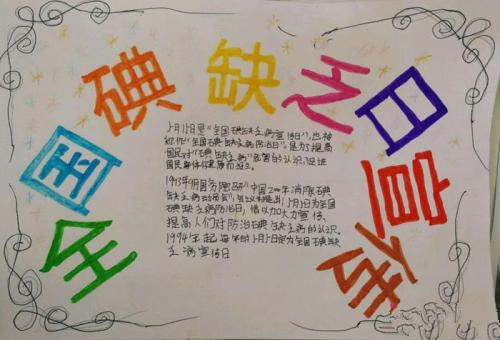 全国碘缺乏日宣传
5月15日是"全国碘缺乏病宣传日",也被
称作"全国碘缺乏病防治日"。是为了提高
国民对"碘缺乏病"危害的认识,促进
国民身体健康而设立。
1993年9月国务院"中国2000年消除碘
缺乏病动员会",提出,5月5日为全国
碘缺乏病防治日,借以加大力宣传,
提高人们对防治碘缺乏病的认识。
1994年起每年的5月5日定为全国碘缺
乏病宣传日